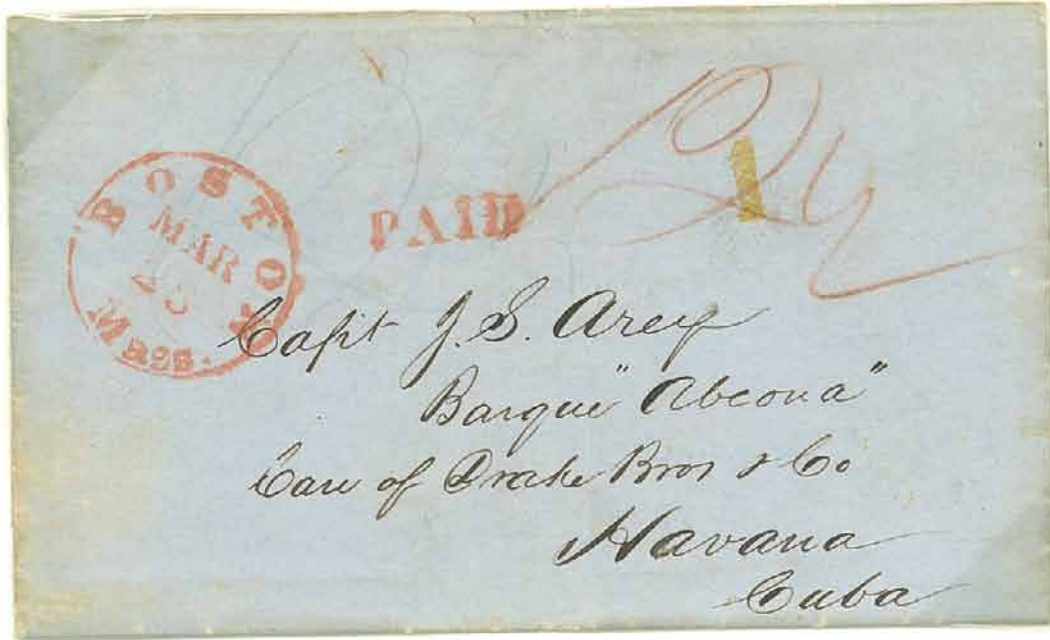 BOSTON
MAR
Mass.
PAID
Capt J. S. Arey
Barque "Abeona"
Care of Drake Bros & Co
Havana
Cuba